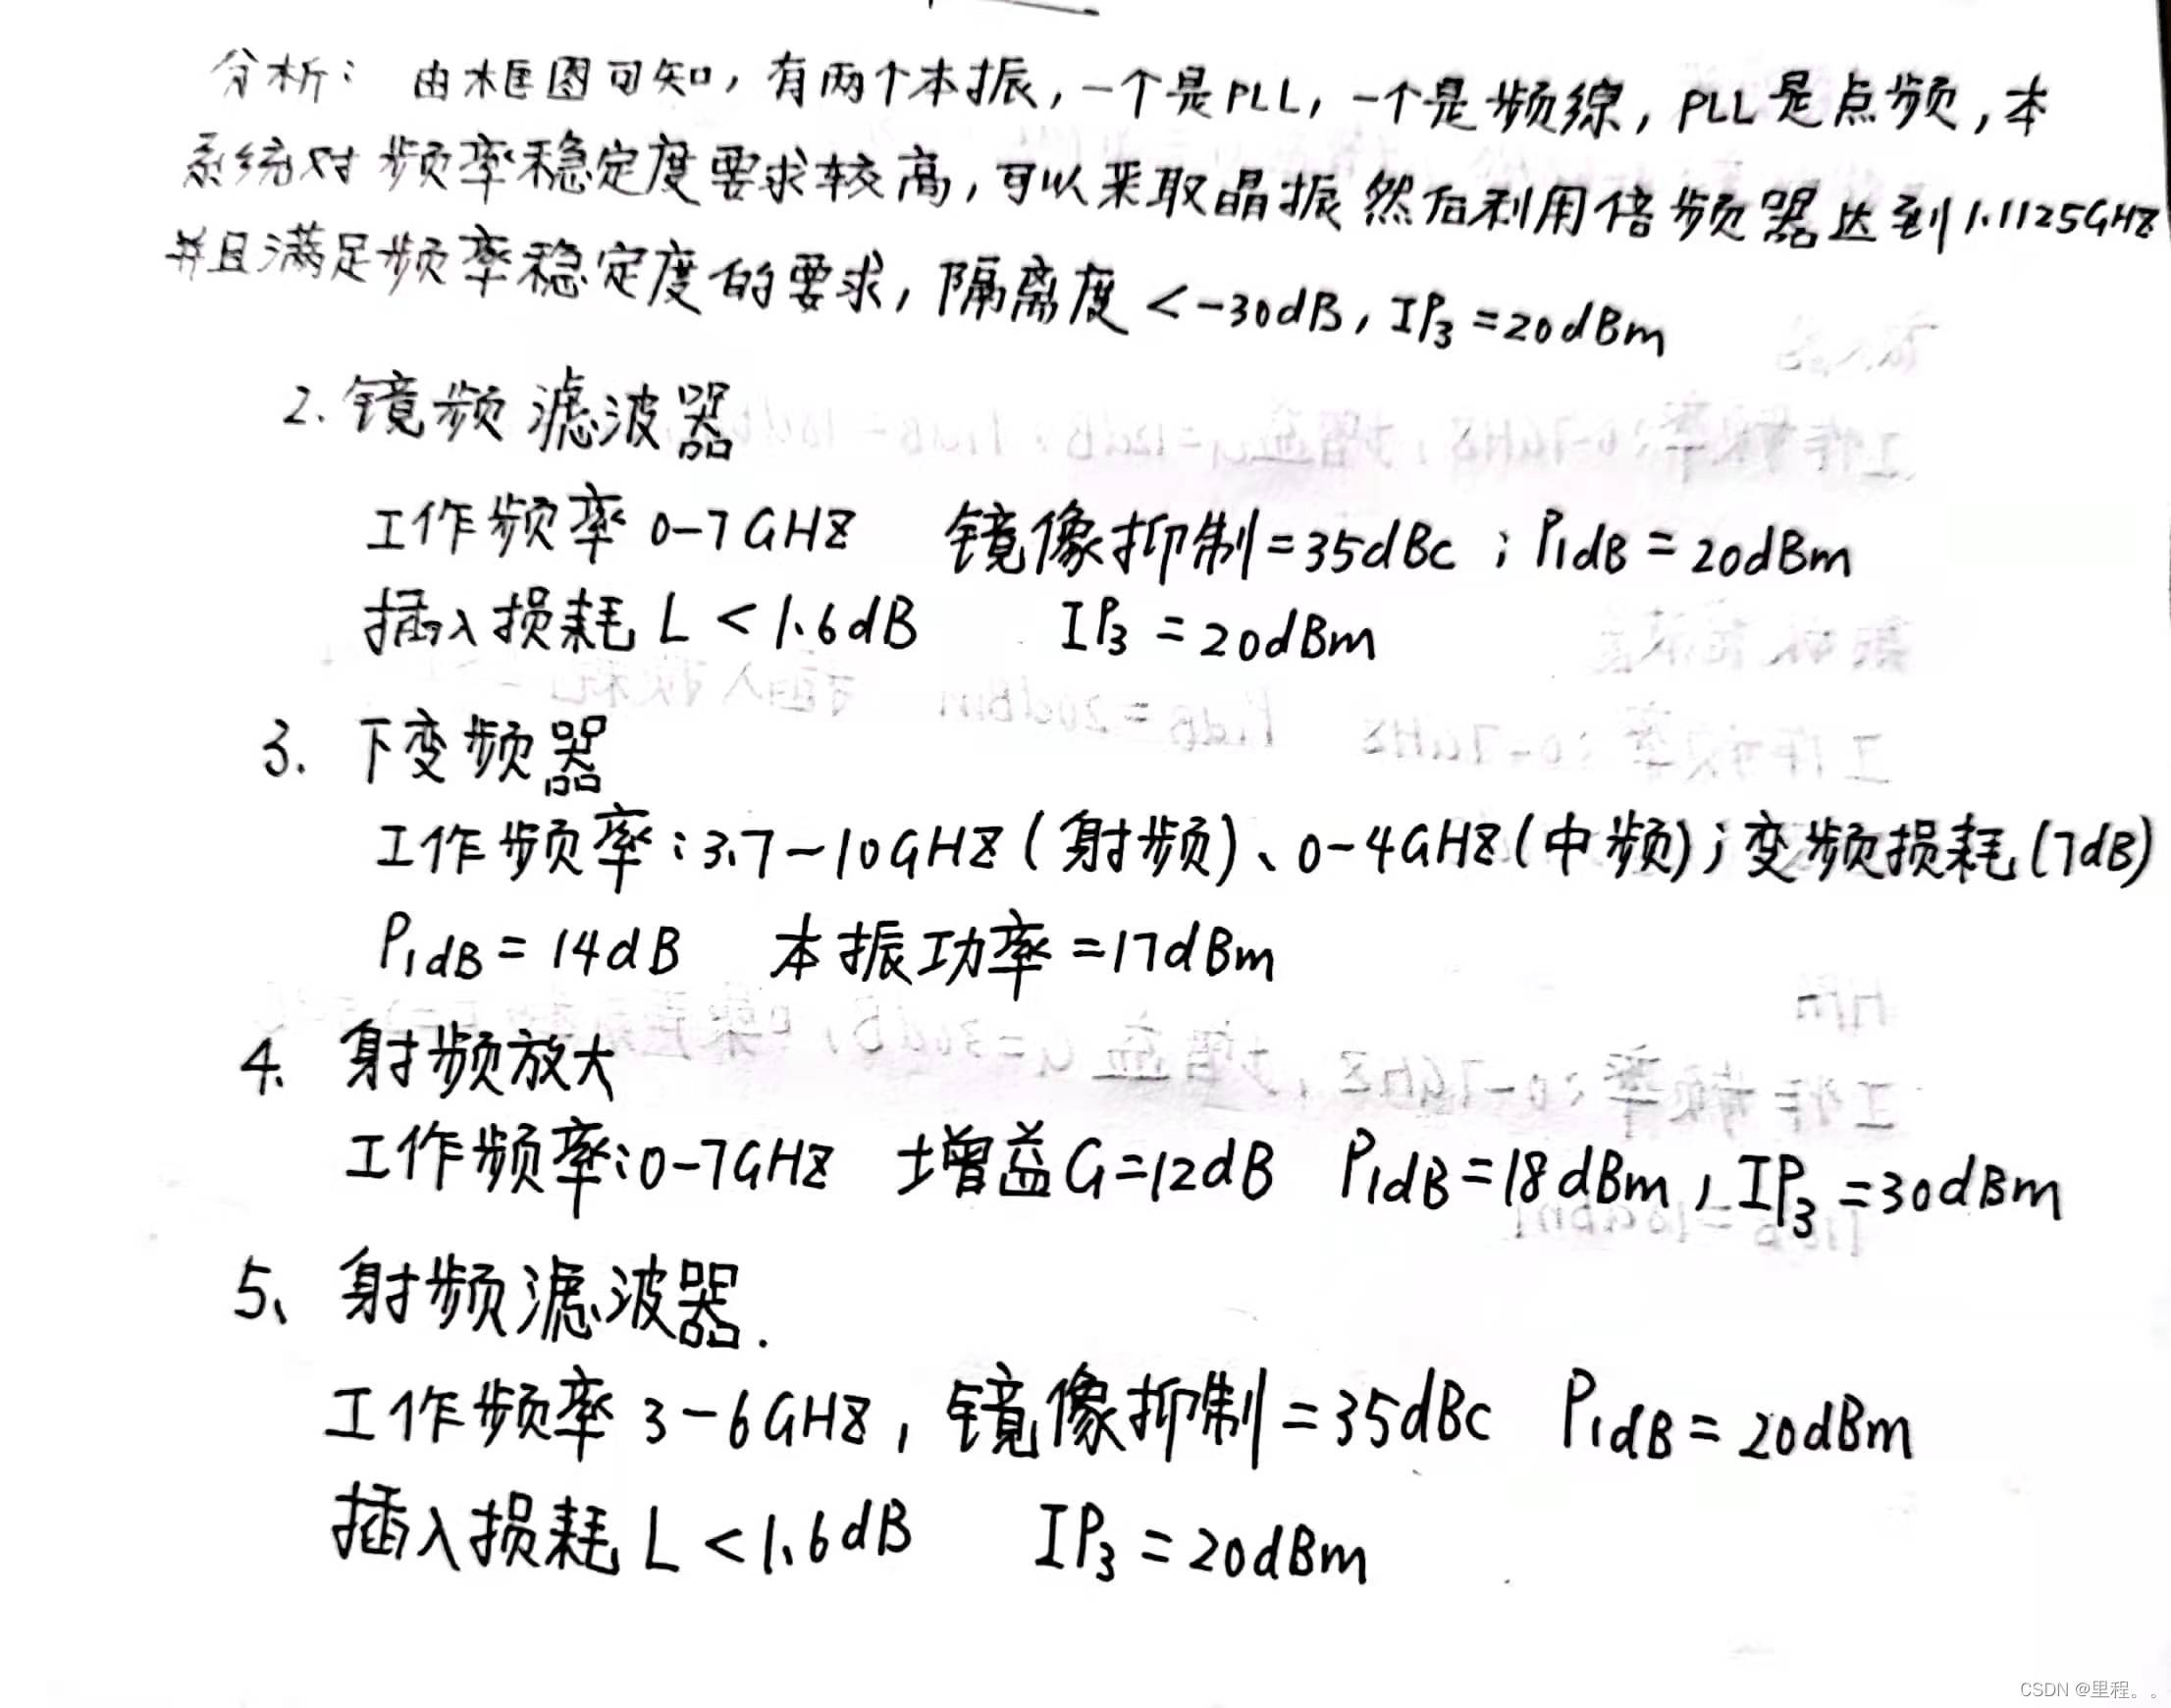 分析：由框图可知，有两个本振，一个是PLL，一个是频综，PLL是点频，本
系统对频率稳定度要求较高，可以采取晶振然后利用倍频器达到1.1125GHZ
并且满足频率稳定度的要求，隔离度<-30dB，IP3=20dBm
2.镜频滤波器
工作频率0-7GHZ 镜像抑制=35dBc；P1dB=20dBm
插入损耗L<1.6dB IP3=20dBm
3.下变频器
工作频率：3.7-10GHZ(射频)、0-4GHZ(中频)；变频损耗(7dB)
P1dB=14dB 本振功率=17dBm
4、射频放大
工作频率：0-7GHZ 增益G=12dB P1dB=18dBm，IP3=30dBm
5、射频滤波器.
工作频率3-6GHZ，镜像抑制=35dBc P1dB=20dBm
插入损耗L<1.6dB IP3=20dBm
CSDN @里程。。